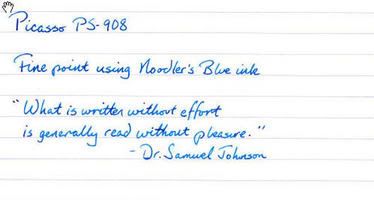 Picasso PS-908
Fine point using Noodler's Blue ink
"What is written without effort
is generally read without pleasure."
- Dr. Samuel Johnson